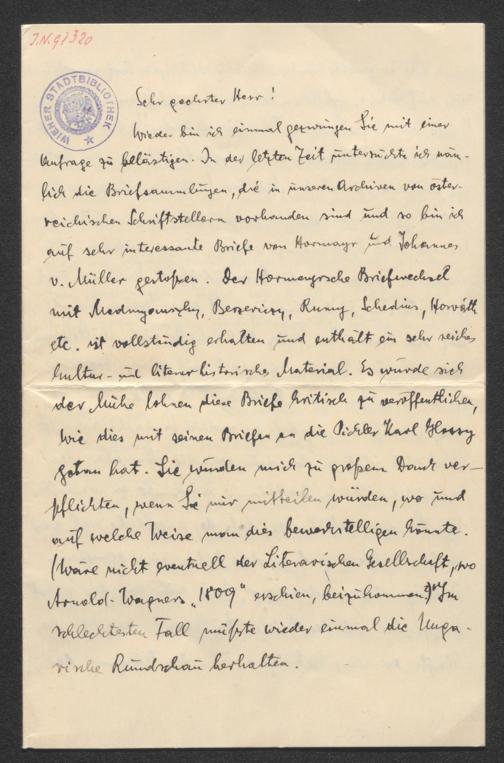 J.N. 91320
WIENER STADTBIBLIOTHEK
Sehr geehrter Herr!
Wieder bin ich einmal gezwungen Sie mit einer
Anfrage zu belästigen. In der letzten Zeit untersuchte ich näm-
lich die Briefsammlungen, die in unseren Archiven von öster-
reichischen Schriftstellern vorhanden sind und so bin ich
auf sehr interessante Briefe von Hormayr und Johannes
v. Müller gestoßen. Der Hormayrsche Briefwechsel
mit Mednyanszky, Berzeviczy, Rumy, Schedius, Horváth
etc. ist vollständig erhalten und enthält ein sehr reiches
kultur- und literarhistorisches Material. Es würde sich
der Mühe lohnen diese Briefe kritisch zu veröffentlichen,
wie dies mit seinen Briefen an die Pichler Karl Glossy
getan hat. Sie würden mich zu großem Dank ver-
pflichten, wenn Sie mir mitteilen würden, wo und
auf welche Weise man dies bewerkstelligen könnte.
(Wäre nicht eventuell der Literarischen Gesellschaft, wo
Arnold-Wagners „1809" erschien, beizukommen?) Im
schlechtesten Fall müßte wieder einmal die Unga-
rische Rundschau herhalten.